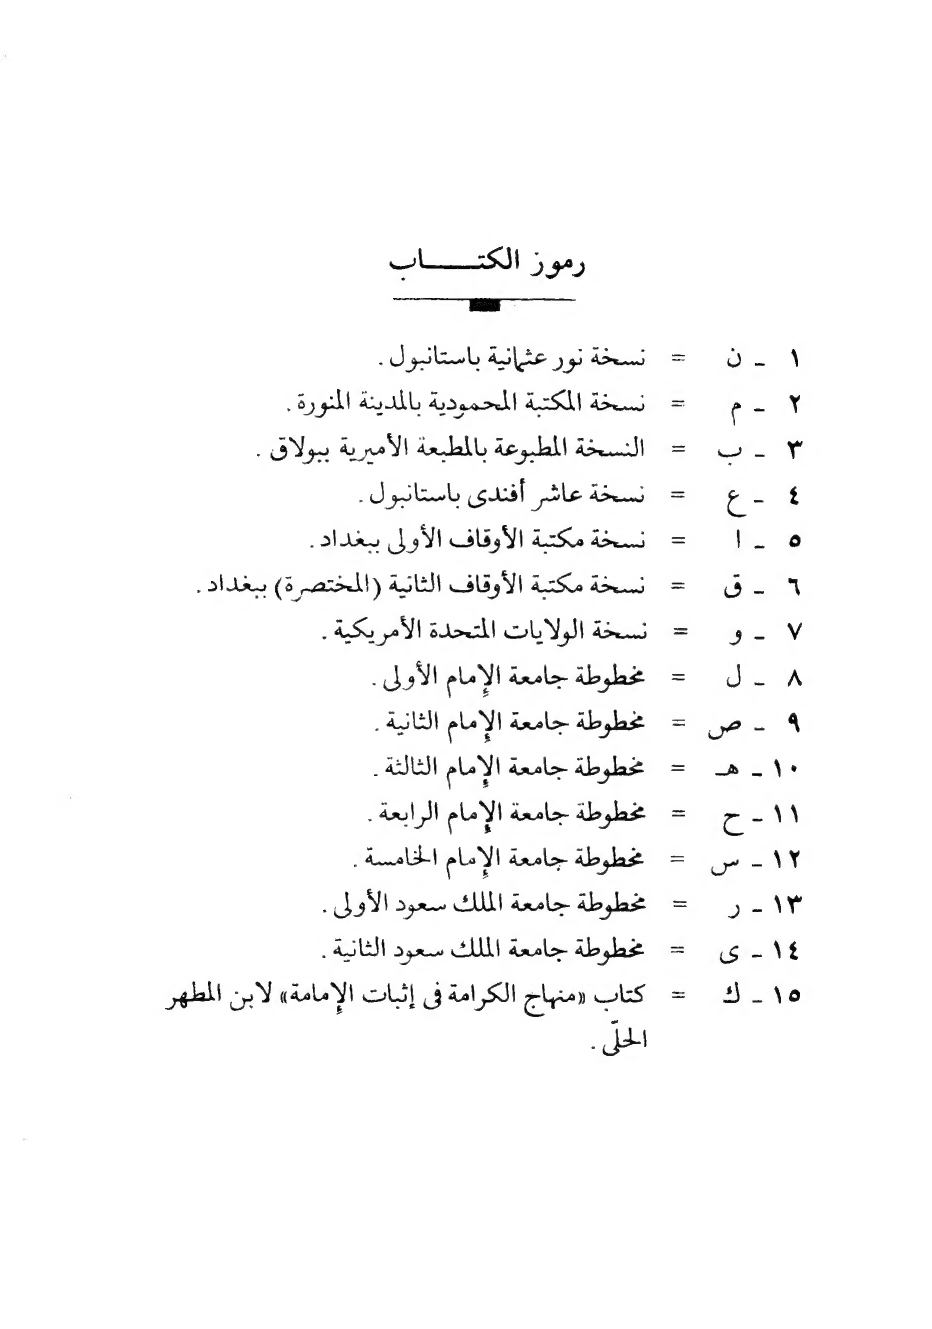 رموز الكتـــــاب
١ - ن = نسخة نور عثمانية باستانبول .
٢ - م = نسخة المكتبة المحمودية بالمدينة المنورة .
٣ - ب = النسخة المطبوعة بالمطبعة الأميرية ببولاق .
٤ - ع = نسخة عاشر أفندى باستانبول .
٥ - ا = نسخة مكتبة الأوقاف الأولى ببغداد .
٦ - ق = نسخة مكتبة الأوقاف الثانية (المختصرة) ببغداد .
٧ - و = نسخة الولايات المتحدة الأمريكية .
٨ - ل = مخطوطة جامعة الإمام الأولى .
٩ - ص = مخطوطة جامعة الإمام الثانية .
١٠ - هـ = مخطوطة جامعة الإمام الثالثة .
١١ - ح = مخطوطة جامعة الإمام الرابعة .
١٢ - س = مخطوطة جامعة الإمام الخامسة .
١٣ - ر = مخطوطة جامعة الملك سعود الأولى .
١٤ - ى = مخطوطة جامعة الملك سعود الثانية .
١٥ - ك = كتاب «منهاج الكرامة فى إثبات الإمامة» لابن المطهر
الحلّى .